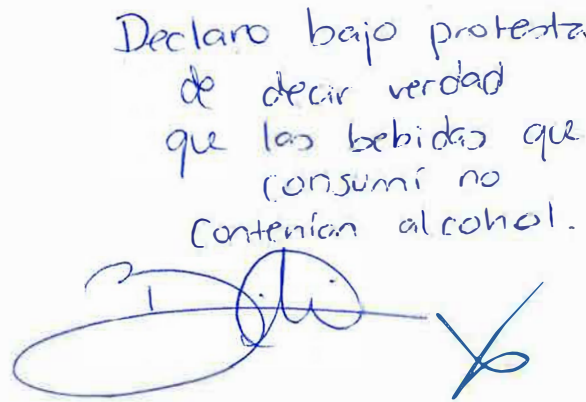 Declaro bajo protesta
de decir verdad
que las bebidas que
consumí no
contenían alcohol.